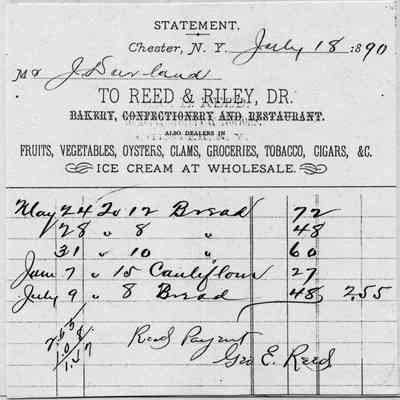 STATEMENT.
Chester, N. Y. July 18 1890
Mr J. Durland
TO REED & RILEY, DR.
BAKERY, CONFECTIONERY AND RESTAURANT.
ALSO DEALERS IN
FRUITS, VEGETABLES, OYSTERS, CLAMS, GROCERIES, TOBACCO, CIGARS, &C.
ICE CREAM AT WHOLESALE.
May 24 To 12 Bread 72
28 " 8 " 48
31 " 10 " 60
June 7 " 15 Cauliflour 27
July 9 " 8 Bread 48 2,55
Recd Payment
Geo E. Reed